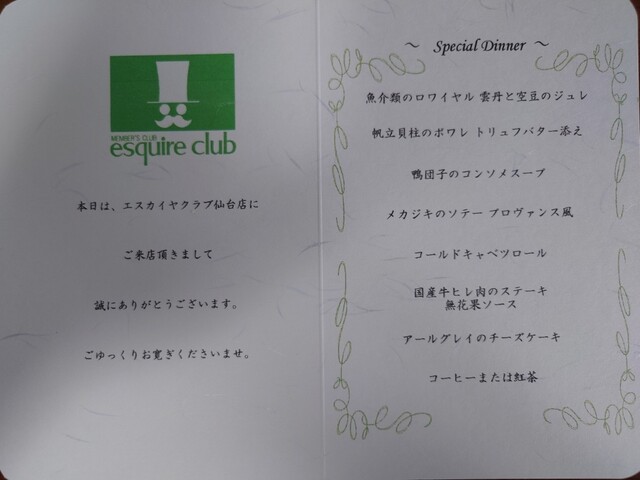 MEMBER'S CLUB
esquire club
本日は、エスカイヤクラブ仙台店に
ご来店頂きまして
誠にありがとうございます。
ごゆっくりお寛ぎくださいませ。
～ Special Dinner ～
魚介類のロワイヤル 雲丹と空豆のジュレ
帆立貝柱のポワレ トリュフバター添え
鴨団子のコンソメスープ
メカジキのソテー プロヴァンス風
コールドキャベツロール
国産牛ヒレ肉のステーキ
無花果ソース
アールグレイのチーズケーキ
コーヒーまたは紅茶